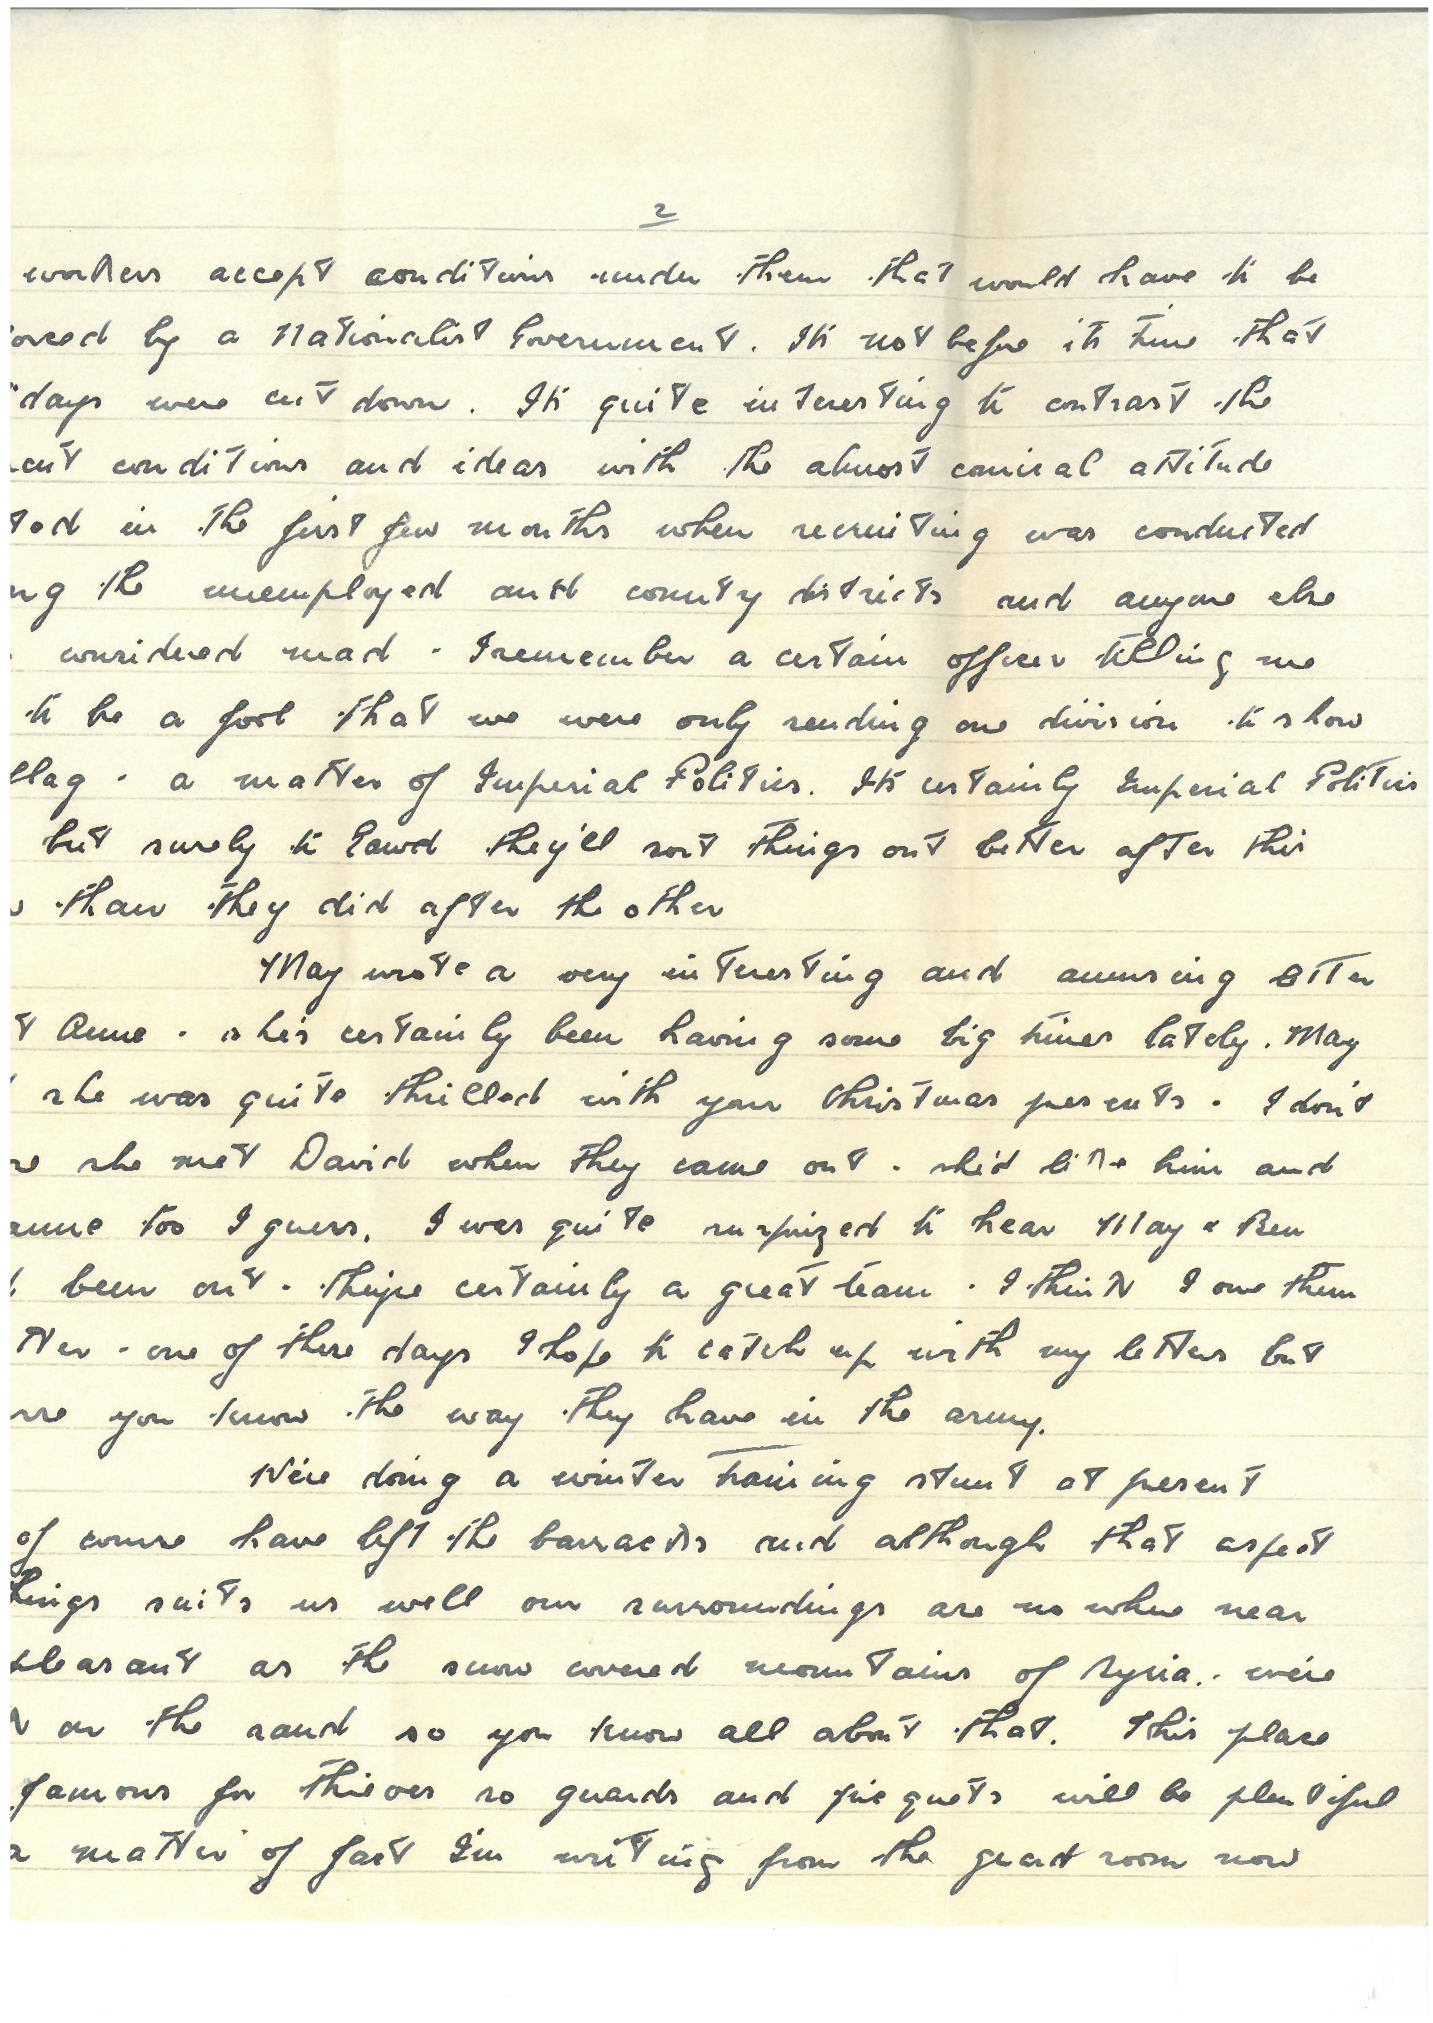 2
workers accept conditions under them that would have to be
orced by a Nationalist Government. Its not before its time that
days were cut down. Its quite interesting to contrast the
ent conditions and ideas with the almost comical attitude
ted in the first few months when recruiting was conducted
ng the unemployed and country districts and anyone else
considered mad - I remember a certain officer telling me
to be a fool that we were only sending one division to show
flag - a matter of Imperial Politics. Its certainly Imperial Politics
but surely to Gawd they'll sort things out better after this
than they did after the other
May wrote a very interesting and amusing etter
t Anne - she's certainly been having some big times lately. May
she was quite thrilled with your Christmas pesents - I don't
re she met David when they came out - she'd like him and
anne too I guess. I was quite surprized to hear May & Ben
been out - they're certainly a great team - I think I owe them
tter - one of these days I hope to catch up with my letters but
rse you know the way they have in the army.
We're doing a winter training stunt at pesent
of course have left the barracks and although that aspect
hings suits us well our surroundings are no where near
pleasant as the snow covered mountains of Syria. - we're
k on the sand so you know all about that. This place
famous for thieves so guards and picquets will be plentiful
a matter of fact I'm writing from the guard room now